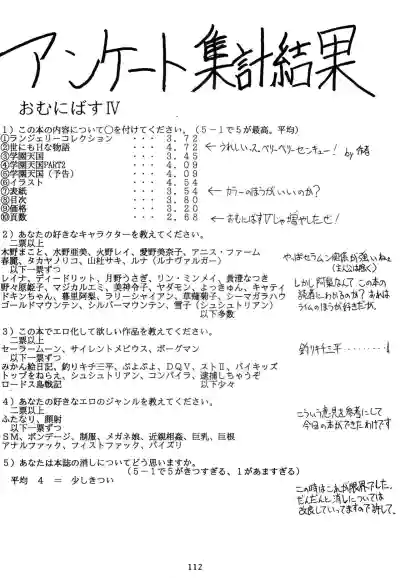 アンケート集計結果
おむにばすⅣ
1）この本の内容について○を付けてください。（5－1で5が最高。平均）
①ランジェリーコレクション ・・・ 3．72
②世にもHな物語 ・・・ 4．72
③学園天国 ・・・ 3．45
④学園天国PART2 ・・・ 4．09
⑤学園天国（予告） ・・・ 4．09
⑥イラスト ・・・ 4．54
⑦表紙 ・・・ 3．54
⑧目次 ・・・ 3．80
⑨価格 ・・・ 3．20
⑩頁数 ・・・ 2．68
←うれしいっス、ベリーベリーセンキュー！ by 作者
←カラーのほうがいいのか？
←おむにばすⅤじゃ増やしたぜ！
2）あなたの好きなキャラクターを教えてください。
二票以上
木野まこと、水野亜美、火野レイ、愛野美奈子、アニス・ファーム
春麗、タカヤノリコ、山杜サキ、ルナ（ルナヴァルガー）
以下一票ずつ
レイナ、ディードリット、月野うさぎ、リン・ミンメイ、貴澄なつき
野々原姫子、マジカルエミ、美神令子、ヤダモン、よっきゅん、キャティ
ドキンちゃん、暮里阿梨、ラリーシャイアン、草薙菊子、シーマガラハウ
ゴールドマウンテン、シルバーマウンテン、雪子（シュシュトリアン）
以下多数
やっぱセーラームン関係が強いねぇ
しかし阿梨なんて この本の
読者にわかるのか？ おれは
ライムのほうが好きだが。
3）この本でエロ化して欲しい作品を教えてください。
二票以上
セーラームーン、サイレントメビウス、ボーグマン
以下一票ずつ
みかん絵日記、釣りキチ三平、ぷよぷよ、DQⅤ、ストⅡ、パイキッズ
トップをねらえ、シュシュトリアン、コンパイラ、逮捕しちゃうぞ
ロードス島戦記 以下少々
釣りキチ三平‥‥‥‥！
4）あなたの好きなエロのジャンルを教えてください。
二票以上
ふたなり、顔射
以下一票ずつ
SM、ボンデージ、制服、メガネ娘、近親相姦、巨乳、巨根
アナルファック、フィストファック、パイズリ
こういう意見を参考にして
今回の本ができたわけです
5）あなたは本誌の消しについてどう思いますか。
（5－1で5がきつすぎる、1があますぎる）
平均 4 ＝ 少しきつい
この時はこれが限界でした。
だんだんと消しについては
改良していってますので許して。
112